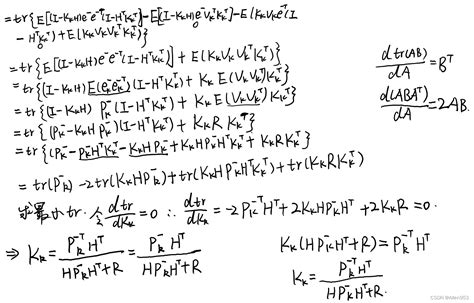 =tr{E[(I-KₖH)e⁻e⁻ᵀ(I-HᵀKₖᵀ)]-E[(I-KₖH)e⁻VₖᵀKₖᵀ]-E(KₖVₖe⁻ᵀ(I
-HᵀKₖᵀ)+E(KₖVₖVₖᵀKₖᵀ)}
=tr{E[(I-KₖH)e⁻e⁻ᵀ(I-HᵀKₖᵀ)]+E(KₖVₖVₖᵀKₖᵀ)}
=tr{(I-KₖH)E(eₖ⁻eₖ⁻ᵀ)(I-HᵀKₖᵀ)+KₖE(VₖVₖᵀ)Kₖᵀ}
=tr{(I-KₖH)Pₖ⁻(I-HᵀKₖᵀ)+KₖE(VₖVₖᵀ)Kₖᵀ}
=tr{(Pₖ⁻-KₖHPₖ⁻)(I-HᵀKₖᵀ)+KₖRKₖᵀ}
=tr{(Pₖ⁻-Pₖ⁻HᵀKₖᵀ-KₖHPₖ⁻+KₖHPₖ⁻HᵀKₖᵀ+KₖRKₖᵀ}
=tr(Pₖ⁻)-2tr(KₖHPₖ⁻)+tr(KₖHPₖ⁻HᵀKₖᵀ)+tr(KₖRKₖᵀ)
求最小tr. 令dtr/dKₖ=0 ∴ dtr/dKₖ=-2Pₖ⁻ᵀHᵀ+2KₖHPₖ⁻Hᵀ+2KₖR=0.
⇒ Kₖ=Pₖ⁻ᵀHᵀ/HPₖ⁻Hᵀ+R=Pₖ⁻Hᵀ/HPₖ⁻Hᵀ+R
dtr(AB)/dA=Bᵀ
d(ABAᵀ)/dA=2AB.
Kₖ(HPₖ⁻Hᵀ+R)=Pₖ⁻ᵀHᵀ
Kₖ=Pₖ⁻ᵀHᵀ/HPₖ⁻Hᵀ+R.